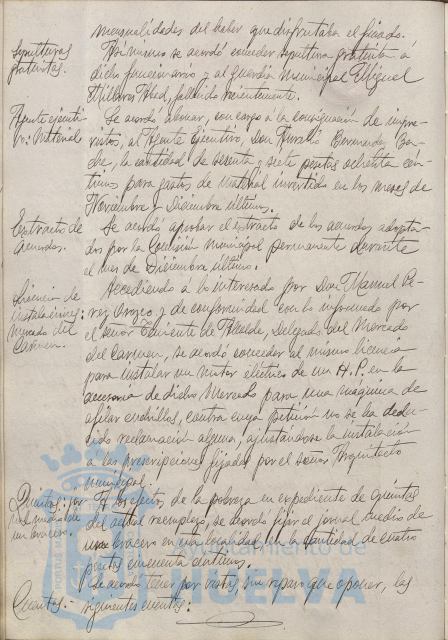 mensualidades del haber que disfrutaba el finado.
Sepulturas gratuitas.
Asi mismo se acordó conceder sepultura gratuita á
dicho funcionario y al guardia municipal Miguel
fallecido recientemente.
Agente ejecutivo: Material
Se acordó abonar, con cargo a la consignación de impre-
vistos, al Agente Ejecutivo, Don Aurelio Bermudez
la cantidad de sesenta y siete pesetas ochenta cén-
timos para gastos de material invertido en los meses de
Noviembre y Diciembre últimos.
Extracto de acuerdos.
Se acordó aprobar el extracto de los acuerdos adopta-
dos por la Comisión municipal permanente durante
el mes de Diciembre último.
Licencia de instalaciones: mercado del Carmen.
Accediendo a lo interesado por Don Manuel Pe-
rez Orozco y de conformidad con lo informado por
el señor Teniente de Alcalde, Delegado del Mercado
del Carmen, se acordó conceder al mismo licencia
para instalar un motor eléctrico de un H.P. en la
accesoria de dicho Mercado para una máquina de
afilar cuchillos, contra cuya petición no se ha dedu-
cido reclamación alguna, ajustándose la instalación
a las prescripciones fijadas por el señor Arquitecto
municipal.
Quintas: jornal medio de un bracero.
A los efectos de la pobreza en expediente de Quintas
del actual reemplazo, se acordó fijar el jornal medio de
un bracero en esta localidad en la cantidad de cuatro
pesetas cincuenta céntimos.
Cuentas.-
Se acordó tener por vistas, sin reparo que oponer, las
siguientes cuentas:
Ayuntamiento de
HUELVA